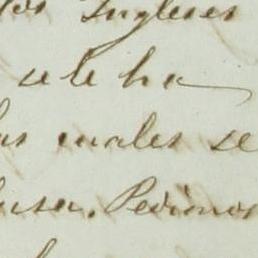 los Ingleses
se le ha
las cuales se
Pedimos